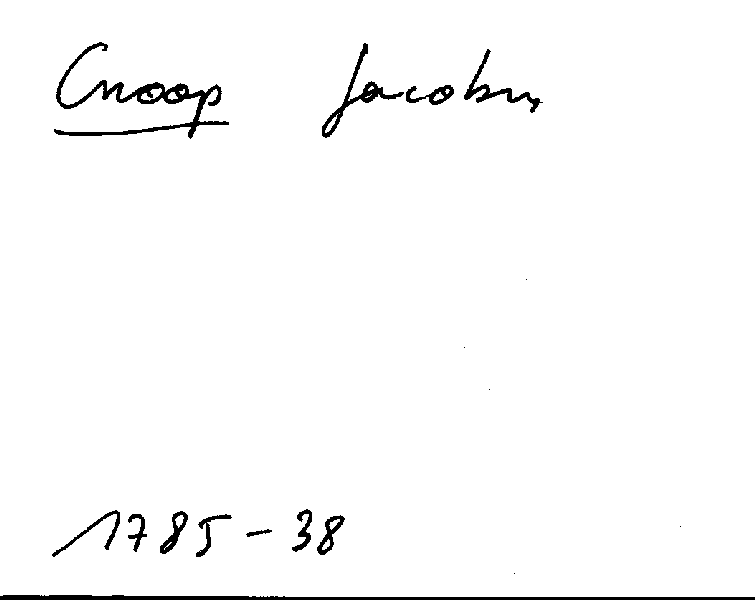 Cnoop Jacobus
1785-38